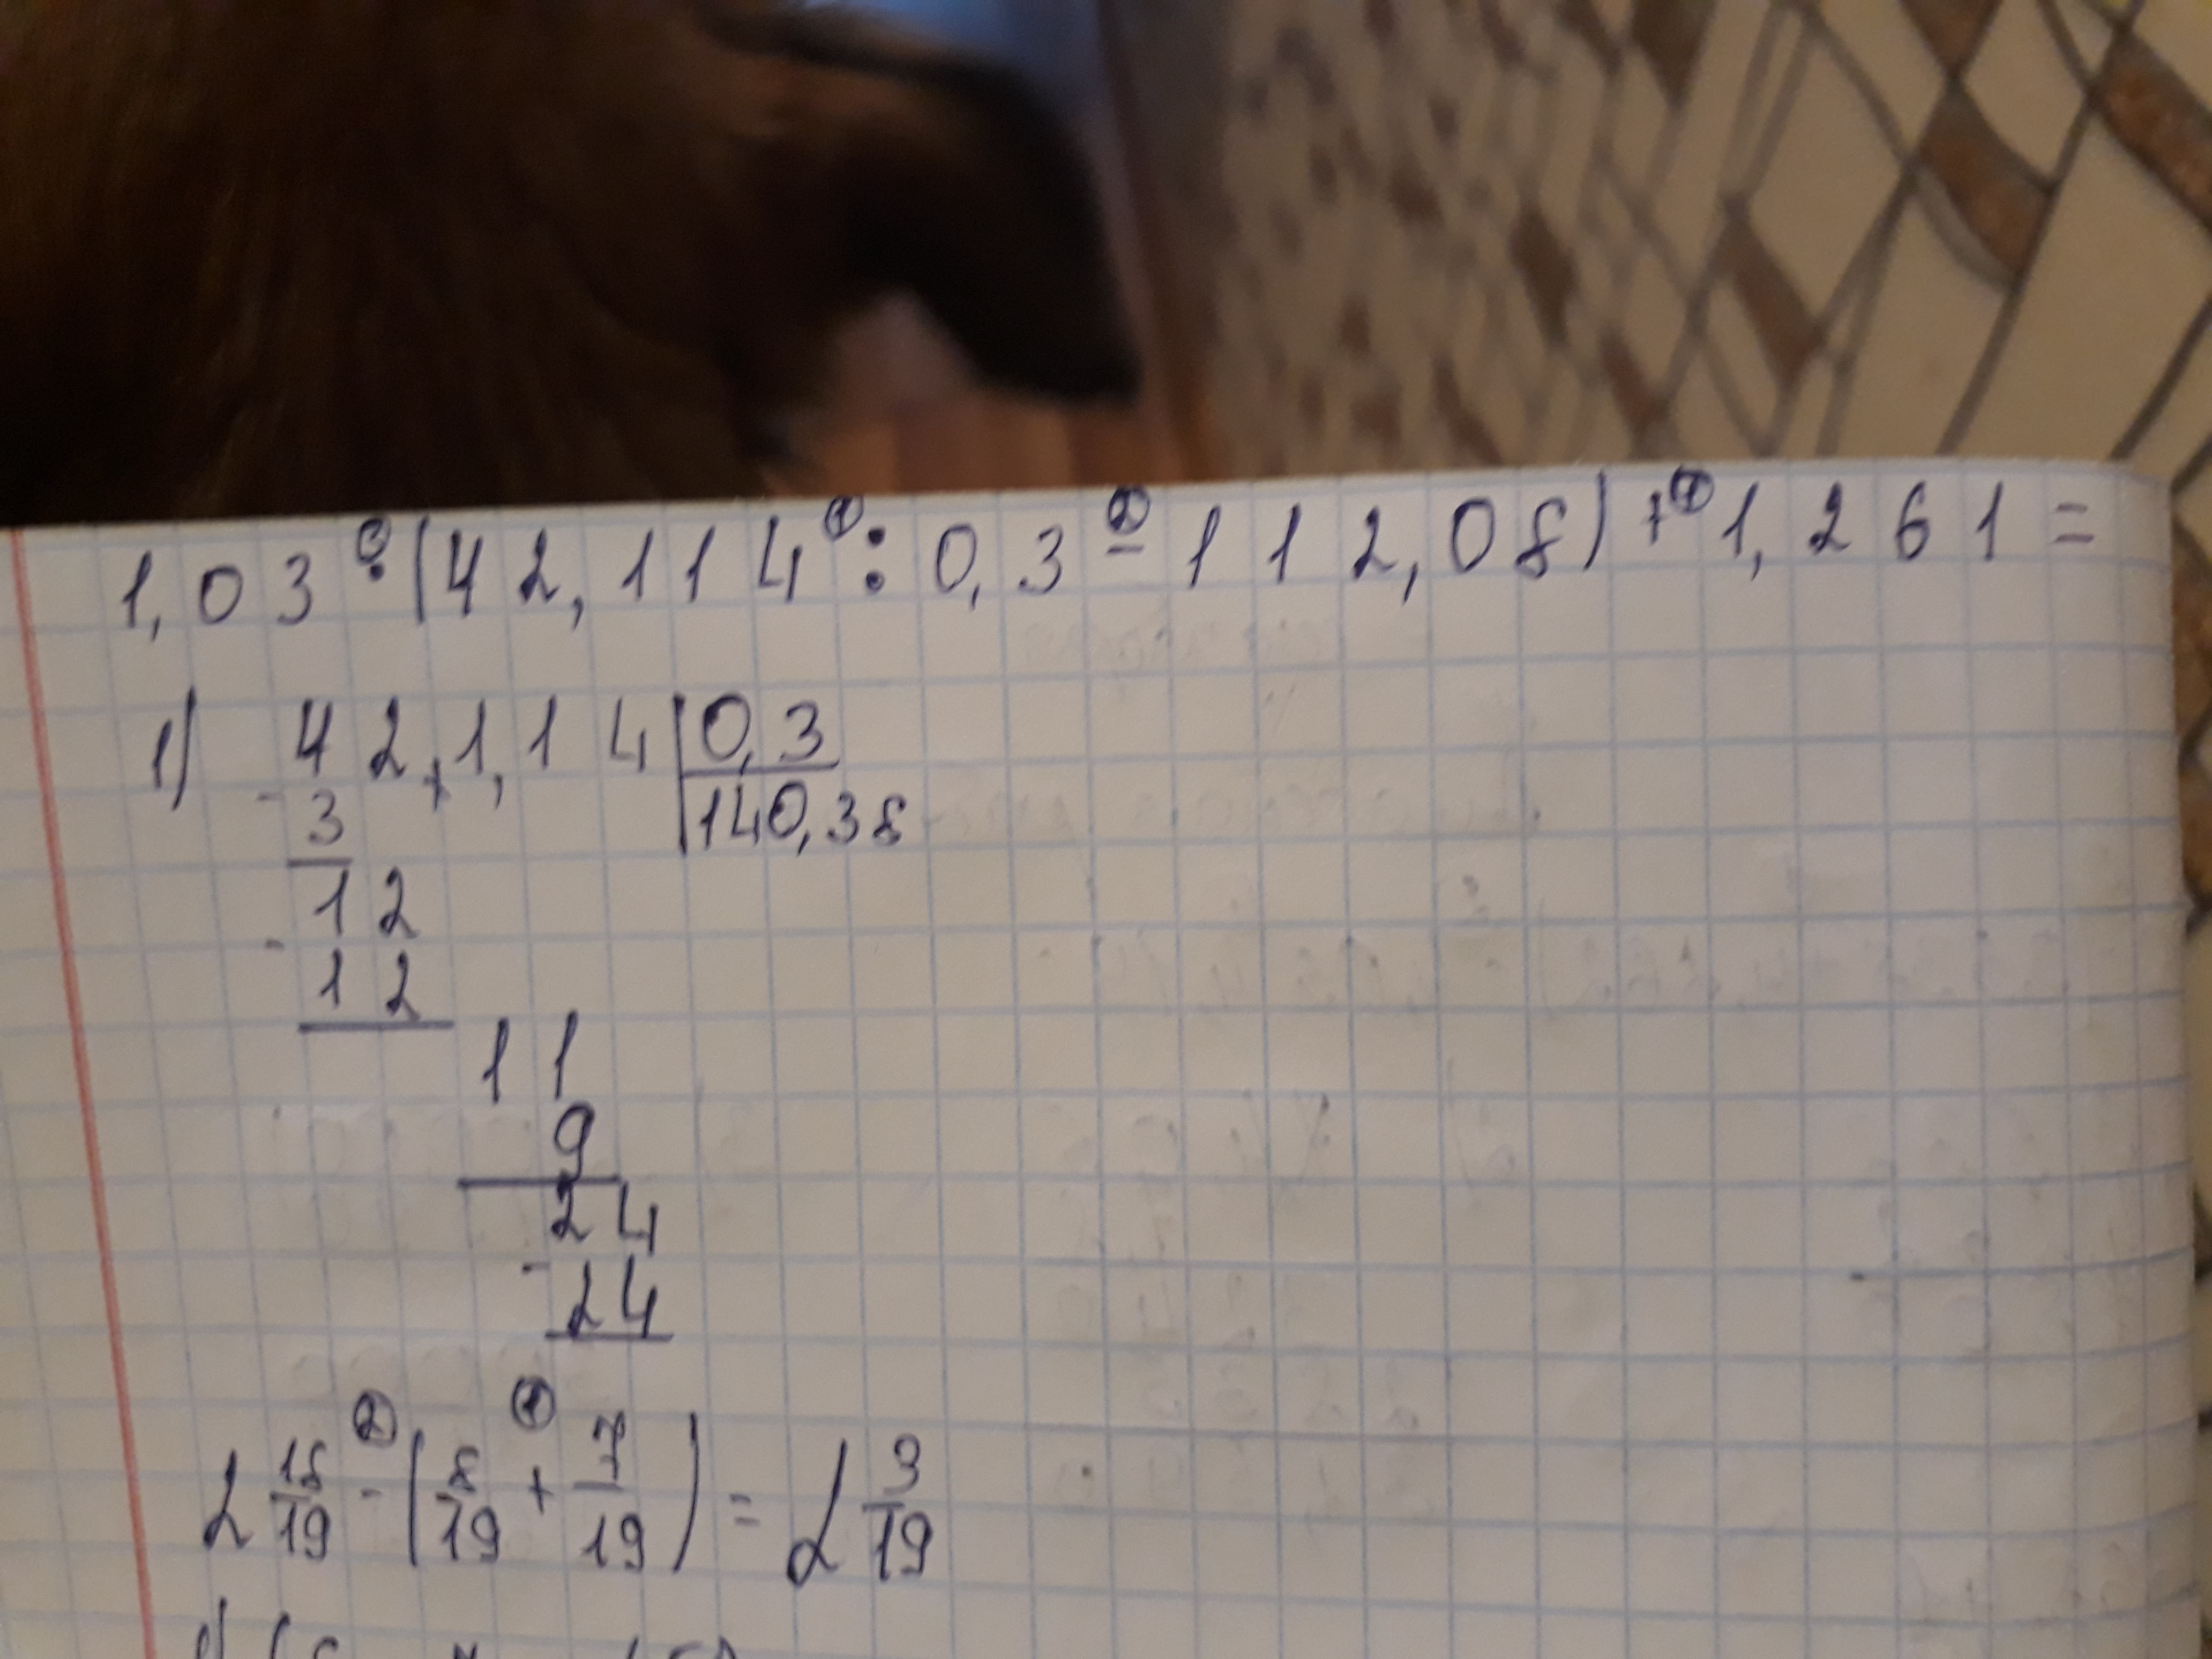 1,03·(42,114:0,3-112,08)+1,261=
1) 42,1,14 | 0,3
- 3 | 140,38
12
- 12
11
9
24
- 24
2 18/19 - (8/19 + 7/19) = 2 3/19